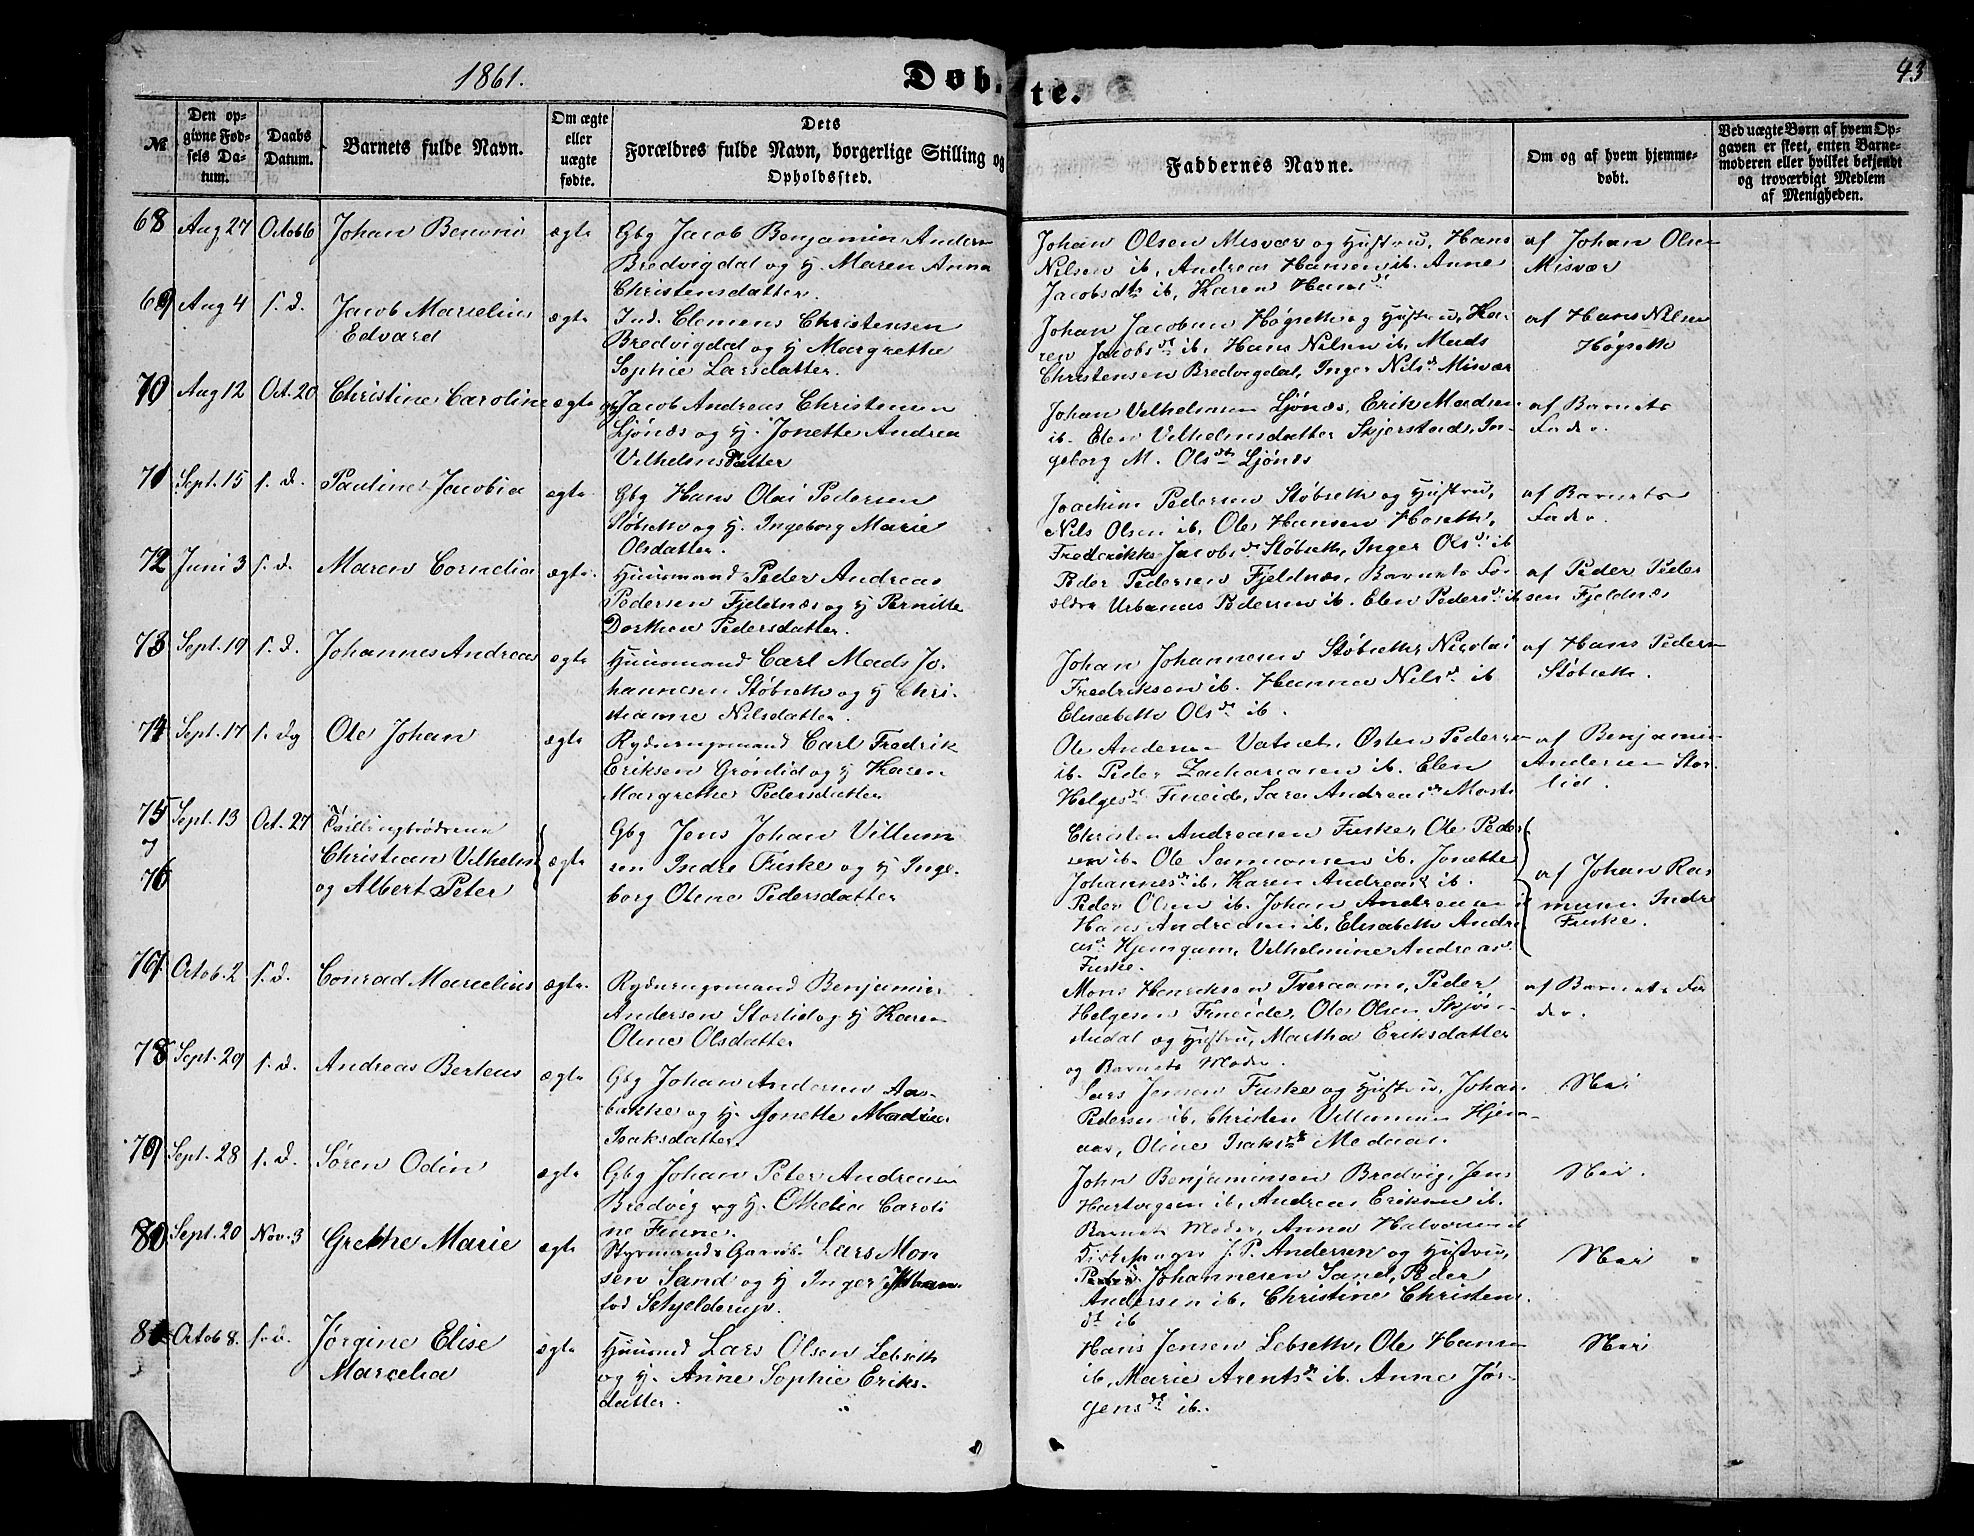 1861.
Døbte.
43
№
Den opgivne Fødsels Datum.
Daabs Datum.
Barnets fulde Navn.
Om ægte eller uægte fødte.
Dets Forældres fulde Navn, borgerlige Stilling og Opholdssted.
Faddernes Navne.
Om og af hvem hjemmedøbt.
Ved uægte Børn af hvem Opgaven er skeet, enten Barnemoderen eller hvilket bekjendt og troværdigt Medlem af Menigheden.
68 Aug 27 Octob 6 Johan ægte
Gbg Jacob Benjamin Andersen
Bredvigdal og H. Maren Anna
Christensdatter.
Johan Olsen Misvær og Hustru, Hans
Nilsen ib, Andreas Hansen ib. Anne
Jacobsdtr ib, Karen Hansd
af Johan Olsen
Misvær
69 Aug 4 s. d. Jacob Marselius
Edvard
ægte
Ind. Clemens Christensen
Bredvigdal og H Margrethe
Sophie Larsdatter.
Johan Jacobsen Høgseth og Hustru, Ka-
ren Jacobsdr ib, Hans Nilsen ib, Mads
Christensen Bredvigdal, Inger Nilsd Misvær
af Hans Nilsen
Høgseth
70 Aug 12 Oct. 20 Christine Caroline ægte
Gbg Jacob Andreas Christensen
Ljønes og H. Jonette Andrea
Vilhelmsdatter
Johan Vilhelmsen Ljønes, Erik Madsen
ib. Elen Vilhelmsdatter Skjerstad, In-
geborg M. Olsdtr Ljønes
af Barnets
Fader.
71 Sept. 15 s. d. Pauline Jacobia ægte
Gbg Hans Olai Pedersen
Støbseth og H. Ingeborg Marie
Olsdatter.
Joachim Pedersen Støbseth og Hustru,
Nils Olsen ib, Ole Hansen Hoseth,
Frederikke Jacobsd Støbseth, Inger Olsd ib
af Barnets
Fader.
72 Juni 3 s. d. Maren Cornelia ægte.
Huusmand Peder Andreas
Pedersen Fjeldnæs og H Pernille
Dorthea Pedersdatter.
Peder Pedersen Fjeldnæs, Barnets For-
ældre Urbanus Pedersen ib. Elen Pedersd ib
af Peder Peder
sen Fjeldnæs
73 Sept. 19 s. d. Johannes Andreas ægte
Huusmand Carl Mads Jo-
hannesen Støbseth og H Chri-
stianne Nilsdatter.
Johan Johannesen Støbseth, Nicolai
Fredriksen ib. Hanna Nilsd ib
Elisabeth Olsdr ib.
af Hans Pedersen
Støbseth.
74 Sept. 17 s. Dg Ole Johan ægte
Rydningsmand Carl Fredrik
Eriksen Grønlid og H Karen
Margrethe Pedersdatter
Ole Andersen Vatnet, Østen Pedersen
ib. Peder Zachariasen ib. Elen
Helgesdr Fineide, Sara Andreasdr
af Benjamin
Andersen Stor-
lid
75 Sept. 13 Oct. 27 Tvillingbrødrene
og Christian Vilhelm ægte
76 og Albert Peter
Gbg Jens Johan Villum
sen Indre Fuske og H Inge-
borg Olena Pedersdatter
Christen Andreasen Fuske, Ole Peder
sen ib. Ole Samuonsen ib. Jonette
Johannesdr ib, Karen Andreasd ib.
Peder Olsen ib. Johan Andreasen ib
Hans Andreasen ib, Elisabeth Andre
asd. Hjemgam, Vilhelmine Andreasd
Fuske.
af Johan Ras
musen Indre
Fuske.
767 Octob. 2 s. d. Conrad Marcelius ægte
Rydningsmand Benjamin
Andersen Storlid og H Karen
Oline Olsdatter
Mons Henriksen Tveraamo, Peder
Helgesen Fineide, Ole Olsen Skjøn-
studal og Hustru, Martha Eriksdatter
og Barnets Moder.
af Barnets Fa
der.
78 Sept. 29 s. d. Andreas Berteus ægte
Gbg Johan Andersen Aas-
bakke og H. Jonette
Isaksdatter.
Lars Jensen Fuske og Hustru, Johan
Pedersen ib, Christen Villumsen Hjem-
aas, Oline Isaksdtr Medaas.
Nei
79 Sept. 28 s. d. Søren Odin ægte
Gbg Johan Peter Andreasen
Bredvig og H. Othelia Caroli
ne Finne.
John Benjaminsen Bredvig, Jens
Hartvigsen ib, Andreas Eriksen ib.
Barnets Moder, Anna Halvorsen ib
Nei.
80 Sept. 20 Nov. 3 Grethe Marie ægte
Styrmand Lars Mon
sen Sand og H Inger Johan
Schjelderup.
Kirkesanger J. P. Andersen og Hustru,
Johannesen Sand, Peder
Andersen ib, Christine Christens
dt ib
Nei
81 Octob 8. s. d. Jørgine Elise
Marcelia
ægte
Huusmd Lars Olsen Lebseth
og H. Anne Sophie Eriks-
datter.
Hans Jensen Lebseth, Ole Hansen
ib, Marie Arentsd ib. Anne Jør-
gensdr ib.
Nei